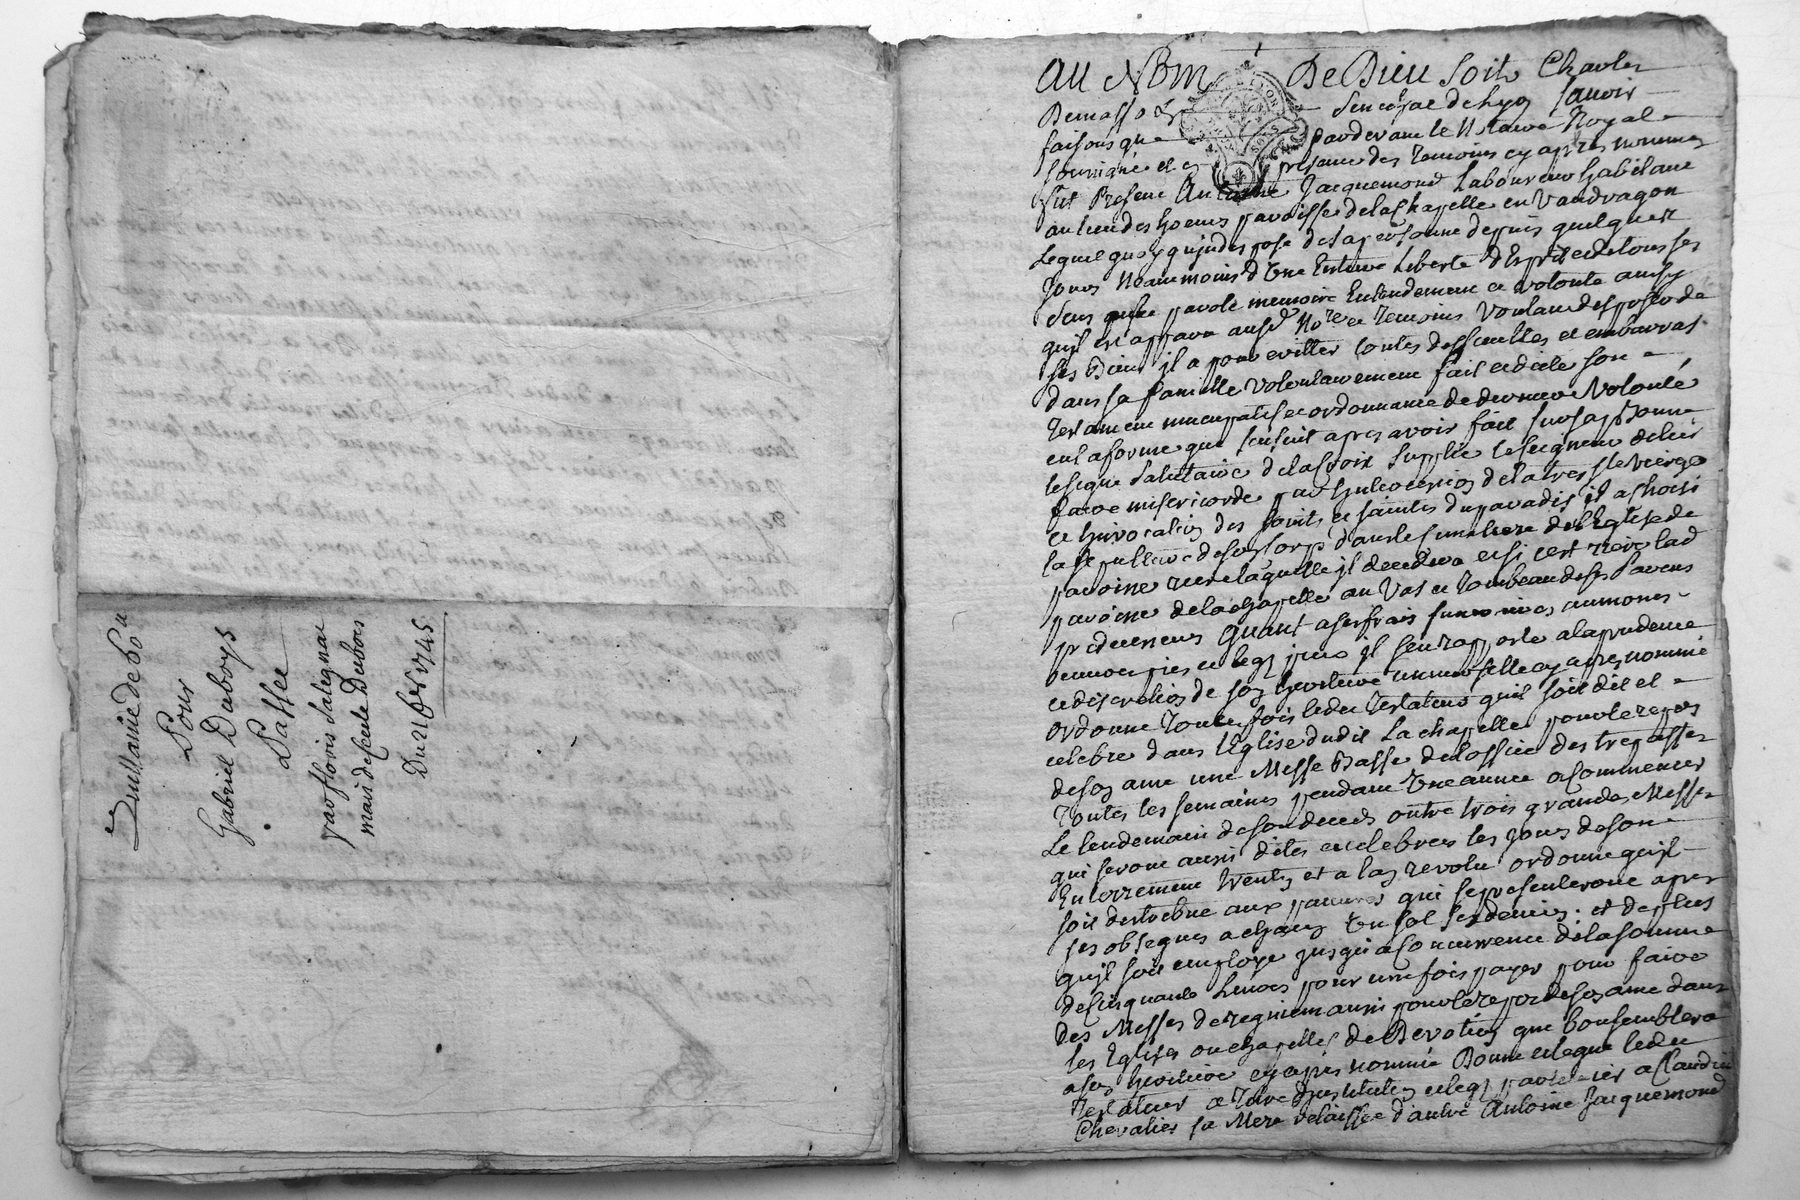 Quittance de 60 ll
Pour
Gabriel Duboys
Lassee
par floris
mary de Dubois
Du 21 1745
AU NOM De Dieu soit Charles
De masso seneschal de lyon savoir
faisons que pardevant le Notaire Royal
soussigné et en presence des temoins cy apres nommes
fut present Antoine Jacquemond Laboureur habitant
au lieu des paroisse de la Chapelle en Vaudragon
Lequel quoyqu'indispose de sa personne depuis quelques
jours Neanmoins d'une Entiere Liberté d'Esprit et de tous ses
sens parole memoire Entendement et volonté ainsy
quil est apparu ausd Nore et temoins voulant disposer de
ses Biens il a pour evitter toutes dessicultes et embarras
dans sa famille volontairement fait et dicté son
testament nuncupatif et ordonnance de derniere Volonté
en la forme que sensuit apres avoir fait sur sa personne
le signe salutaire de la Croix supplié le seigneur de lui
faire misericorde par Lintercession de la tres ste vierge
et Linvocation des saints et saintes du paradis il a choisi
la sepulture de son corps dans le simetiere de l'Eglise de
paroisse riere laquelle il decedera et si cest riere lad
paroisse de la chapelle au Vas et tombeau de ses Parens
predecesseurs Quant a ses frais funeraires aumones
oeuvres pies et legs pieux il sen rapporte a la prudence
et discretion de son heritiere universelle cy apres nommée
ordonne toutesfois ledit testateur quil soit dit et
celebré dans l'Eglise dudit La chapelle pour le repos
de son ame une Messe Basse de l'office des trepasses
toutes les semaines pendant une année a commencer
Le lendemain de son deces outre trois grandes Messes
qui seront aussi dites et celebrees les jours de son
Enterrement trentin et a lan revolu ordonne quil
soit distribué aux pauvres qui se presenteront apres
ses obseques a chacun un sol six deniers : et de plus
quil soit employé jusqu'a concurrence de la somme
de Cinquante Livres pour une fois payer pour faire
des Messes de requiem aussi pour le repos de son ame dans
les Eglises ou chapelles de Devotion que bon semblera
a son heritiere cy apres nommée Donne et legue ledit
testateur a titre d'institution et legs particulier a Claudine
Chevalier sa Mere delaissée d'autre Antoine Jacquemond